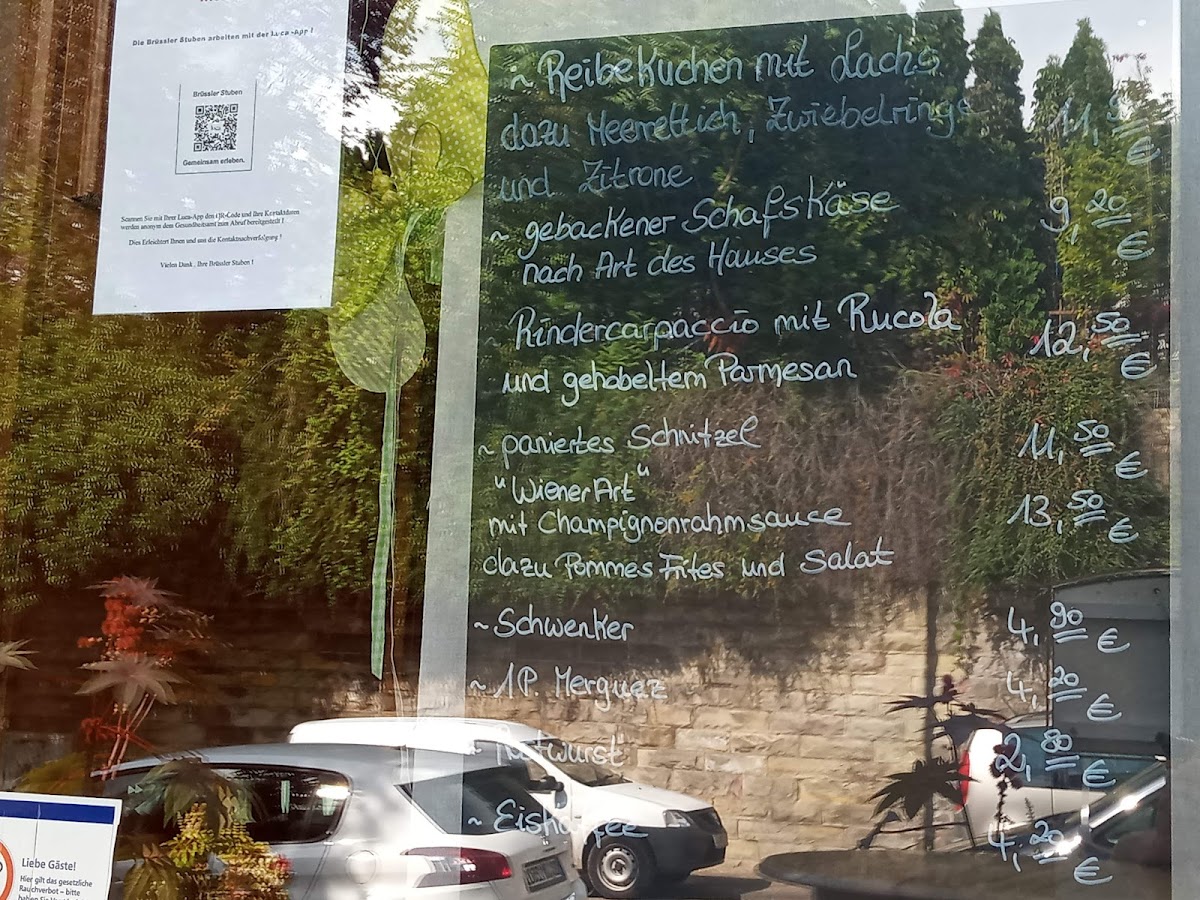 Die Brüssler Stuben arbeiten mit der Luca-App !
Brüssler Stuben
Gemeinsam erleben.
Scannen Sie mit Ihrer Luca-App den QR-Code und Ihre Kontaktdaten
werden anonym dem Gesundheitsamt zum Abruf bereitgestellt !
Dies Erleichtert Ihnen und uns die Kontaktnachverfolgung !
Vielen Dank , Ihre Brüssler Stuben !
~ Reibekuchen mit Lachs
dazu Meerrettich, Zwiebelringe 11,50 €
und Zitrone
~ gebackener Schafskäse 9,20 €
nach Art des Hauses
Rindercarpaccio mit Rucola 12,50 €
und gehobeltem Parmesan
~ paniertes Schnitzel 11,50 €
"Wiener Art"
mit Champignonrahmsauce 13,50 €
dazu Pommes Frites und Salat
~ Schwenker 4,90 €
~ 1P. Merguez 4,20 €
~ Rostwurst 2,80 €
~ Eiskaffee 4,20 €
Liebe Gäste!
Hier gilt das gesetzliche
Rauchverbot – bitte